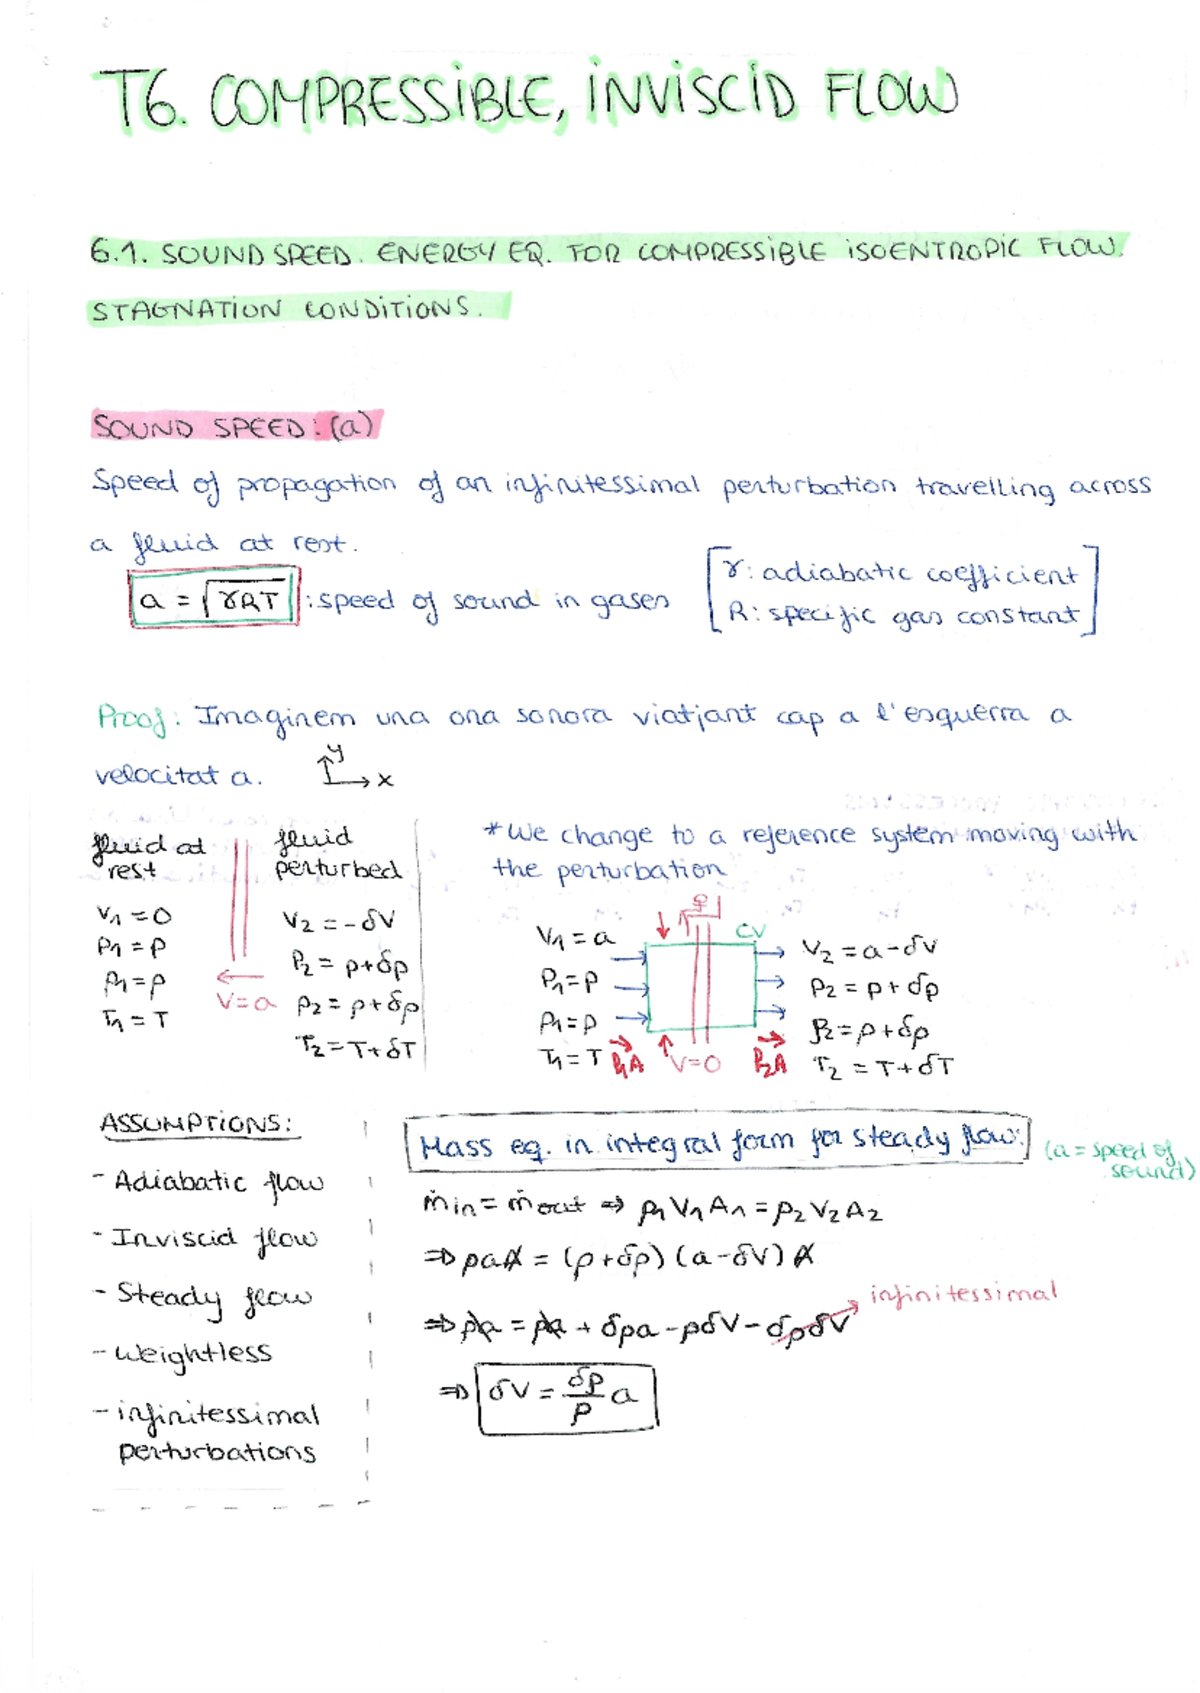 T6. COMPRESSIBLE, INVISCID FLOW
6.1. SOUND SPEED. ENERGY EQ. FOR COMPRESSIBLE ISOENTROPIC FLOW.
STAGNATION CONDITIONS.
SOUND SPEED: (a)
Speed of propagation of an infinitessimal perturbation travelling across
a fluid at rest.
a = √γRT : speed of sound in gases
[γ: adiabatic coefficient
R: specific gas constant]
Proof: Imaginem una ona sonora viatjant cap a l'esquerra a
velocitat a.
y
x
fluid at
rest
V₁ = 0
P₁ = P
ρ₁ = ρ
T₁ = T
V = a
fluid
perturbed
V₂ = -δV
P₂ = P + δP
ρ₂ = ρ + δρ
T₂ = T + δT
* We change to a reference system moving with
the perturbation
CV
V₁ = a
P₁ = P
ρ₁ = ρ
T₁ = T
P₁A
V = 0
P₂A
V₂ = a - δV
P₂ = P + δP
ρ₂ = ρ + δρ
T₂ = T + δT
ASSUMPTIONS:
- Adiabatic flow
- Inviscid flow
- Steady flow
- Weightless
- infinitessimal
perturbations
Mass eq. in integral form for steady flow:
(a = speed of
sound)
ṁin = ṁout ⇒ ρ₁V₁A₁ = ρ₂V₂A₂
⇒ ρaA = (ρ + δρ)(a - δV)A
⇒ ρa = ρa + δρa - ρδV - δρδV
infinitessimal
⇒ δV = δρ/ρ a